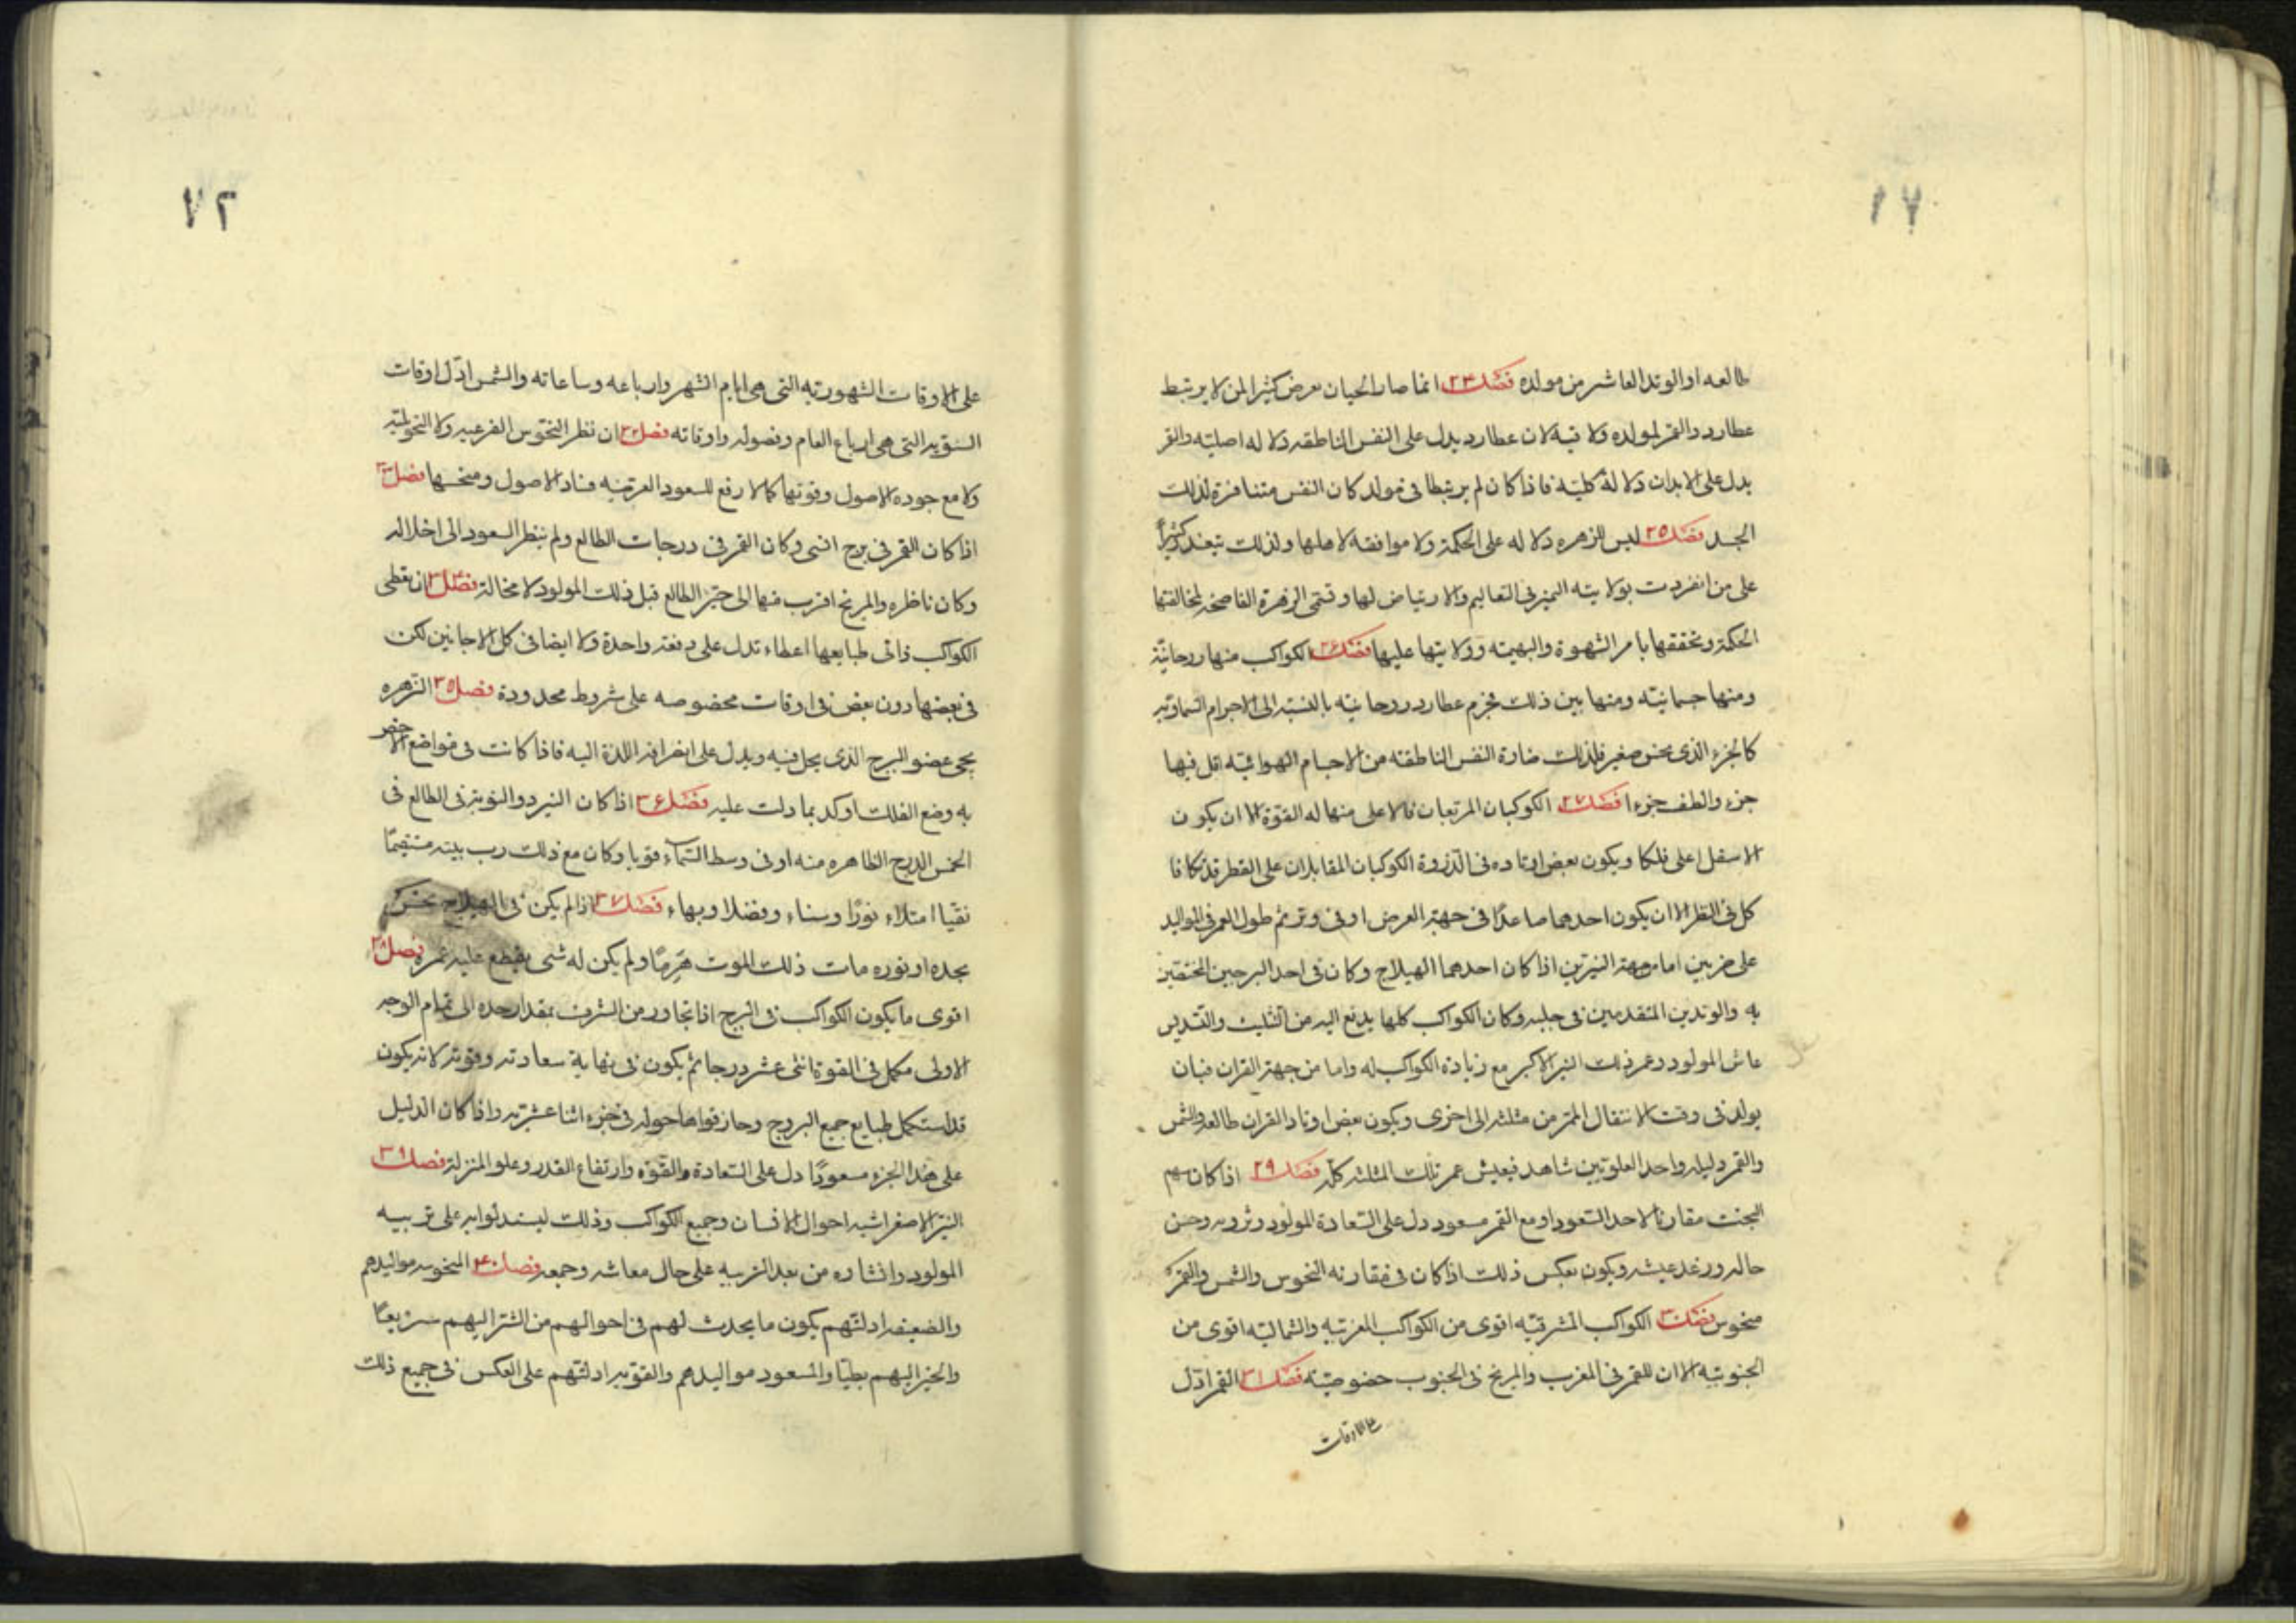 ٧١
طالعه او الوتد العاشر من مولده فصل ٢٣ انما صار الحيان يعرض كثيرا لمن لا يرتبط
عطارد والقمر لمولده ولا نية لان عطارد يدل على النفس الناطقه دلاله اصليته والقمر
يدل على الابدان دلالة كليته فاذا كان لم يرتبطا فى مولد كان النفس متنافرة لذلك
الجسد فصل ٢٥ ليس للزهره دلاله على الحكمة ولا موافقة لاهلها ولذلك تبعد كثيرًا
على من انفردت بولايته التميز فى التعاليم والارتياض لها وتسمى الزهرة الفاضحة لمخالفتها
الحكمة وتحققها بامر الشهوة والبهيته وولايتها عليها فصل ٢٦ الكواكب منها روحانيّة
ومنها جسمانيّته ومنها بين ذلك فجرم عطارد روحانيه بالنسبة الى الاجرام السماويّة
كالجزء الذى نحس صغير فلذلك صارة النفس الناطقته من الاجسام الهوائيّه اقل فيها
جزء والطف جزءا فصل ٢٧ الكوكبان المرتبعان فالاعلى منهما له القوّة الا ان يكون
الاسفل اعلى فلكا ويكون بعض اوتاده فى الذروة الكوكبان المقابلان على القطر قد تكافا
كل فى النظر الا ان يكون احدهما صاعدًا فى جهة العرض او فى وتر ثم طول العمر فى المواليد
على ضربين اما من جهة النيّرين اذا كان احدهما الهيلاج وكان فى احد البرجين المختصين
به والوتدين المتقدمين فى جلبه وكان الكواكب كلها يدفع اليه من التثليث والتسديس
عاش المولود وعمر ذلك النير الاكبر مع زيادة الكواكب له واما من جهة القران فبان
يولد فى وقت الانتقال الممر من مثلثه الى اخرى ويكون بعض اوتاد القران طالعه والشمس
والقمر دليله واحد العلويّين شاهد فيعيش عمر تلك المثلثه كلّه فصل ٢٩ اذا كان سهم
البخت مقارنا لاحد السّعود او مع القمر مسعود دل على السّعادة المولود وثروته وحسن
حاله ورغد عيشه ويكون بعكس ذلك اذا كان فى مقارنه النحوس والشمس والقمر
منحوس فصل ٣٠ الكواكب المشرقيّه اقوى من الكواكب المغربيّه والشماليّه اقوى من
الجنوبيّه الا ان للقمر فى المغرب والمريخ فى الجنوب خصوصيّته فصل ٣١ القمر ادّل
على الاوقات
٧٢
على الاوقات الشهوريّه التى هى ايام الشهر وارباعه وساعاته والشمس ادّل اوقات
السّنويه التى هى ارباع العام وفصوله واوقاته فصل ٣٢ ان نظر النحوس الفرعيه ولا التحويليّه
ولا مع جوده الاصول وقوتها كالا رفع للسعود العرضيّه فساد الاصول ومنحسها فصل ٣٣
اذا كان القمر فى برج انثى وكان القمر فى درجات الطالع ولم ينظر السعود الى اخلاله
وكان ناظره والمريخ اقرب منها الى حيّز الطالع قبل ذلك المولود لا محالة فصل ٣٤ ان تعطى
الكواكب ذاتى طبايعها اعطاء تدل على دفعة واحدة ولا ايضا فى كل الاحايين لكن
فى بعضها دون بعض فى اوقات مخصوصه على شروط محدودة فصل ٣٥ الزهره
يحى عضو البرج الذى يحل فيه ويدل على انصراف اللذة اليه فاذا كانت فى مواضع الاخصر
به وضع الفلك اوكد بما دلت عليه فصل ٣٦ اذا كان النير ذو النوبة فى الطالع فى
الخمس الدرج الظاهره منه او فى وسط السّماء قويا وكان مع ذلك رب بيته مستقيمًا
نقيّا امتلاء نورًا وسناء وفضلا وبهاء فصل ٣٧ اذا لم يكن فى الهيلاج نحس
بحده او نوره مات ذلك الموت هَرِمًا ولم يكن له شى يقطع عليه عمره فصل ٣٨
اقوى ما يكون الكواكب فى البرج اذا تجاوز من الشرف بمقدار حده الى تمام الوجه
الاولى مكمل فى القوة اثنى عشر درجا ثم يكون فى نهاية سعادته وقوته لانه يكون
قد استكمل طبايع جميع البروج وحاز قواها حوله فى جزء اثنا عشريّه واذا كان الدليل
على هذا الجزء مسعودًا دل على السّعادة والقوّه وارتفاع القدر وعلو المنزلة فصل ٣٩
النيّر الاصغر اشبه احوال الانسان وجميع الكواكب وذلك ليستدلوا به على تربيه
المولود وانتشاره من بعد التربيه على حال معاشه وجمعه فصل ٤٠ المنحوسه مواليدهم
والضعيفه ادلتهم يكون ما يحدث لهم فى احوالهم من الشر اليهم سريعًا
والخير اليهم بطيّا والمسعود مواليدهم والقويّه ادلتهم على العكس فى جميع ذلك